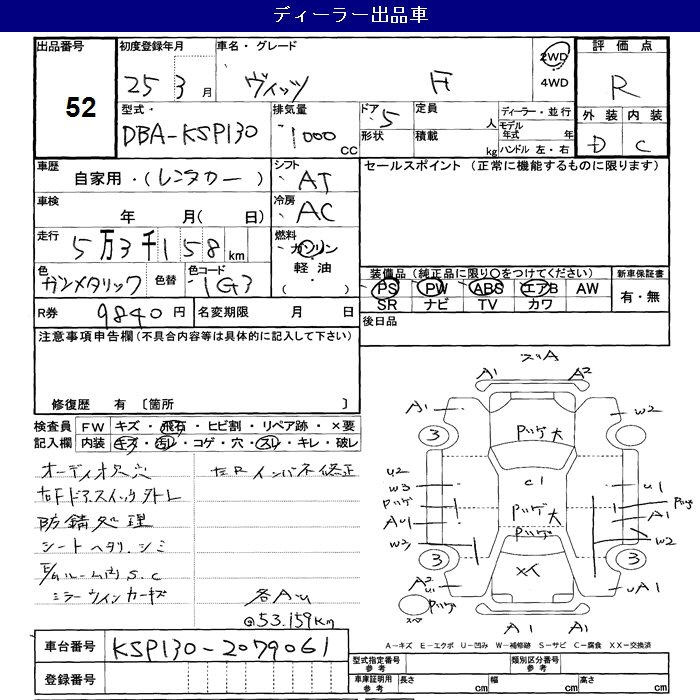 ディーラー出品車
出品番号 初度登録年月 車名・グレード 評価点
52
25 3月 ヴィッツ F 2WD 4WD R
型式・ 排気量 ドア・ 定員 ディーラー・並行 外装 内装
DBA-KSP130 1000 CC 5 人 モデル年式 年 D C
形状 積載 kg ハンドル 左・右
車歴 自家用・(レンタカー) シフト AT セールスポイント (正常に機能するものに限ります)
車検 年 月(日) 冷房 AC
走行 5万3千158km 燃料 ガソリン 軽油・ ( )
色 ガンメタリック 色替 色コード 1G3 装備品 (純正品に限り○をつけてください) 新車保証書
PS PW ABS エアB AW 有・無
SR ナビ TV カワ
R券 9840円 名変期限 月 日 後日品
注意事項申告欄(不具合内容等は具体的に記入して下さい)
修復歴 有 〔箇所 〕
検査員 FW キズ・飛石・ヒビ割・リペア跡・×要
記入欄 内装 キズ・汚レ・コゲ・穴・スレ・キレ・破レ
オーディオ欠穴 右Rインパネ修正
右Fドアスイッチ外レ
防錆処理
シートヘタリ、シミ
E/gルーム内S.C
ミラーウインカーキズ 各AU
@53.159km
スリA
A1 A2
A1 W2
3 バリゲ大 3
U2 C1
W3 U1
バリゲ バリゲ大 バリゲ
AU1 A1
バリゲ
W3 W2
3 XX 3
A2 U1 UA1
バリゲ
スペ
A1 A1
車台番号 KSP130-2079061
A-キズ E-エクボ U-凹み W-補修跡 S-サビ C-腐食 XX-交換済
登録番号 型式指定番号 参考 類別区分番号 参考
車庫証明用 参考 長さ cm 幅 cm 高さ cm